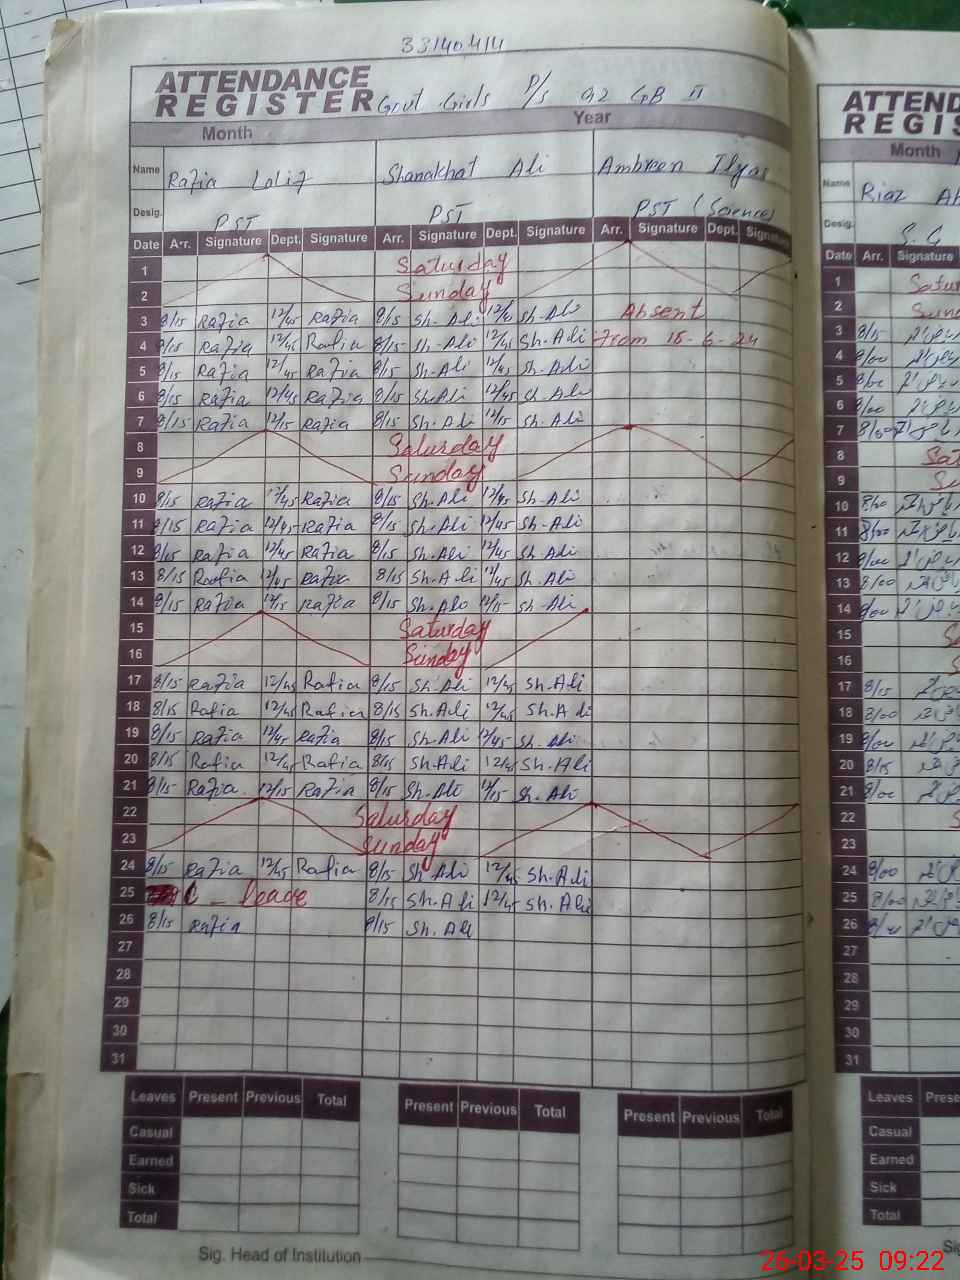 33140414
ATTENDANCE
REGISTER Govt Girls P/S 92 GB II
Month Year
Name Razia Shanakhat Ali Ambreen Ilyas
Desig. PST PST PST (Science)
Date Arr. Signature Dept. Signature Arr. Signature Dept. Signature Arr. Signature Dept. Signature
1 Saturday
2 Sunday
3 8/15 Razia 12/45 Razia 8/15 Sh. Ali 12/45 Sh. Ali Absent
4 8/15 Razia 12/45 Razia 8/15 Sh. Ali 12/45 Sh. Ali From 15-6-24
5 8/15 Razia 12/45 Razia 8/15 Sh. Ali 12/45 Sh. Ali
6 8/15 Razia 12/45 Razia 8/15 Sh. Ali 12/45 Sh. Ali
7 8/15 Razia 12/15 Razia 8/15 Sh. Ali 12/15 Sh. Ali
8 Saturday
9 Sunday
10 8/15 Razia 12/45 Razia 8/15 Sh. Ali 12/45 Sh. Ali
11 8/15 Razia 12/45 Razia 8/15 Sh. Ali 12/45 Sh. Ali
12 8/15 Razia 12/45 Razia 8/15 Sh. Ali 12/45 Sh. Ali
13 8/15 Razia 12/45 Razia 8/15 Sh. Ali 12/45 Sh. Ali
14 8/15 Razia 12/15 Razia 8/15 Sh. Ali 12/15 Sh. Ali
15 Saturday
16 Sunday
17 8/15 Razia 12/45 Razia 8/15 Sh. Ali 12/45 Sh. Ali
18 8/15 Razia 12/45 Razia 8/15 Sh. Ali 12/45 Sh. Ali
19 8/15 Razia 12/45 Razia 8/15 Sh. Ali 12/45 Sh. Ali
20 8/15 Razia 12/45 Razia 8/15 Sh. Ali 12/45 Sh. Ali
21 8/15 Razia 12/15 Razia 8/15 Sh. Ali 12/15 Sh. Ali
22 Saturday
23 Sunday
24 8/15 Razia 12/45 Razia 8/15 Sh. Ali 12/45 Sh. Ali
25 C - leave 8/15 Sh. Ali 12/45 Sh. Ali
26 8/15 Razia 8/15 Sh. Ali
27
28
29
30
31
Leaves Present Previous Total Present Previous Total Present Previous Total
Casual
Earned
Sick
Total
Sig. Head of Institution
ATTEND
REGIS
Month
Name Riaz
Desig. S.
Date Arr. Signature
1
2
3 8/15
4 8/00
5 8/00
6 8/00
7 8/00
8
9
10 8/00
11 8/00
12 8/00
13 8/00
14 8/00
15
16
17 8/15
18 8/00
19 8/00
20 8/15
21 8/00
22
23
24 8/00
25 8/00
26
27
28
29
30
31
Leaves Prese
Casual
Earned
Sick
Total
26-03-25 09:22